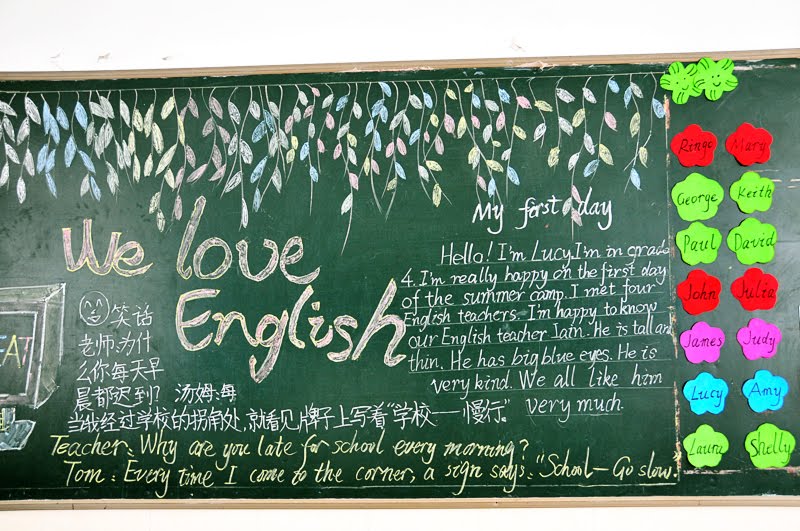 We love
English
My first day
Hello! I'm Lucy. I'm in grade
4. I'm really happy on the first day
of the summer camp. I met four
English teachers. I'm happy to know
our English teacher Iain. He is tall and
thin. He has big blue eyes. He is
very kind. We all like him
very much.
笑话
老师:为什
么你每天早
晨都迟到? 汤姆:每
当我经过学校的拐角处,就看见牌子上写着"学校——慢行"
Teacher: Why are you late for school every morning?
Tom: Every time I come to the corner, a sign says: "School—Go slow."
Ringo Mary
George Keith
Paul David
John Julia
James Judy
Lucy Amy
Laura Shelly